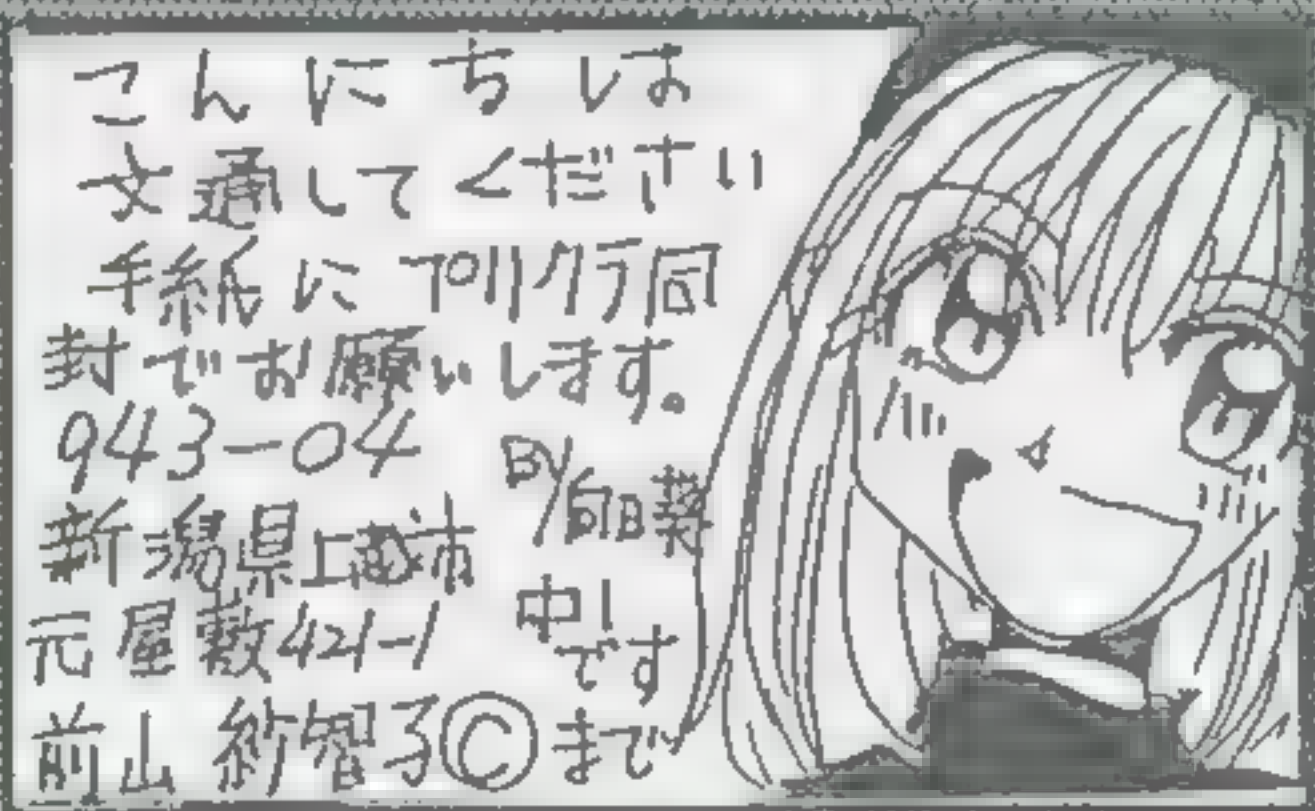 こんにちは
文通してください
手紙にプリクラ同
封でお願いします。
943-04
新潟県上越市
元屋敷421-1
前山 紗智子Ⓒまで
BY/向日葵
中1
です